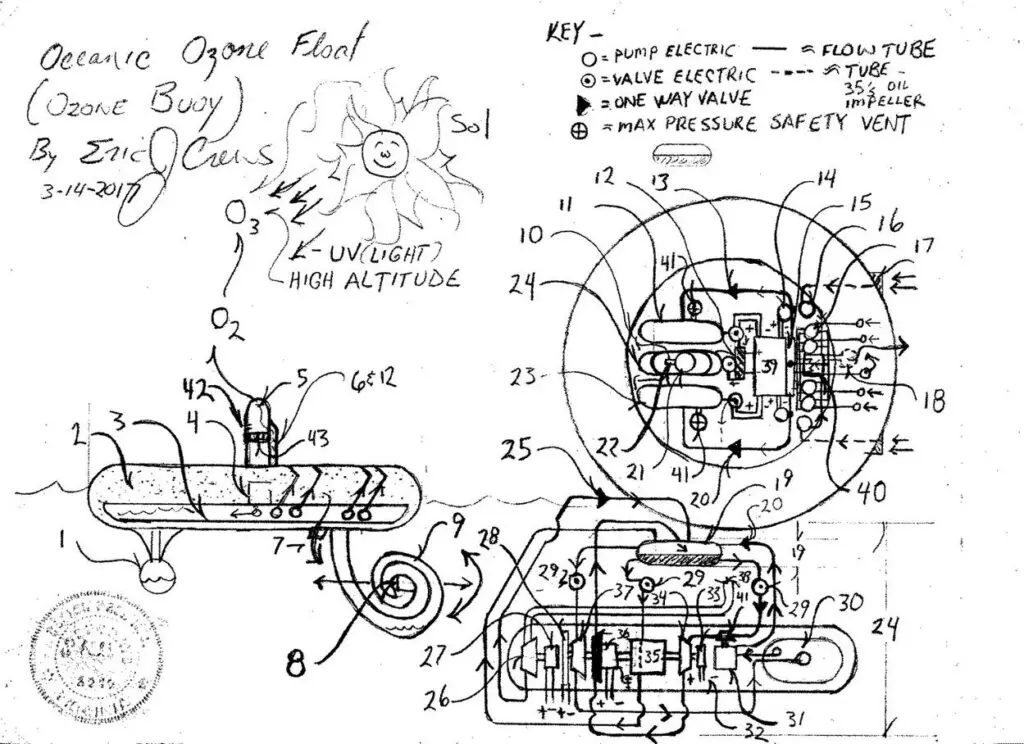 Oceanic Ozone Float
(Ozone Buoy)
By Eric J Crews
3-14-2017
Sol
O3
← UV (LIGHT)
HIGH ALTITUDE
O2
KEY –
= PUMP ELECTRIC
= VALVE ELECTRIC
= ONE WAY VALVE
= MAX PRESSURE SAFETY VENT
≈ FLOW TUBE
≈ TUBE –
35's OIL
IMPELLER
42 5 6&12
2 3 4 43
1 7 9
8
10 11 12 13 14 15 16 17
24 41
23 39 18
22 21 41 20 40
25 19 20
28 29 29 38 19 29
37 34 33 41 30
27 36 35 24
26 32 31
+ -